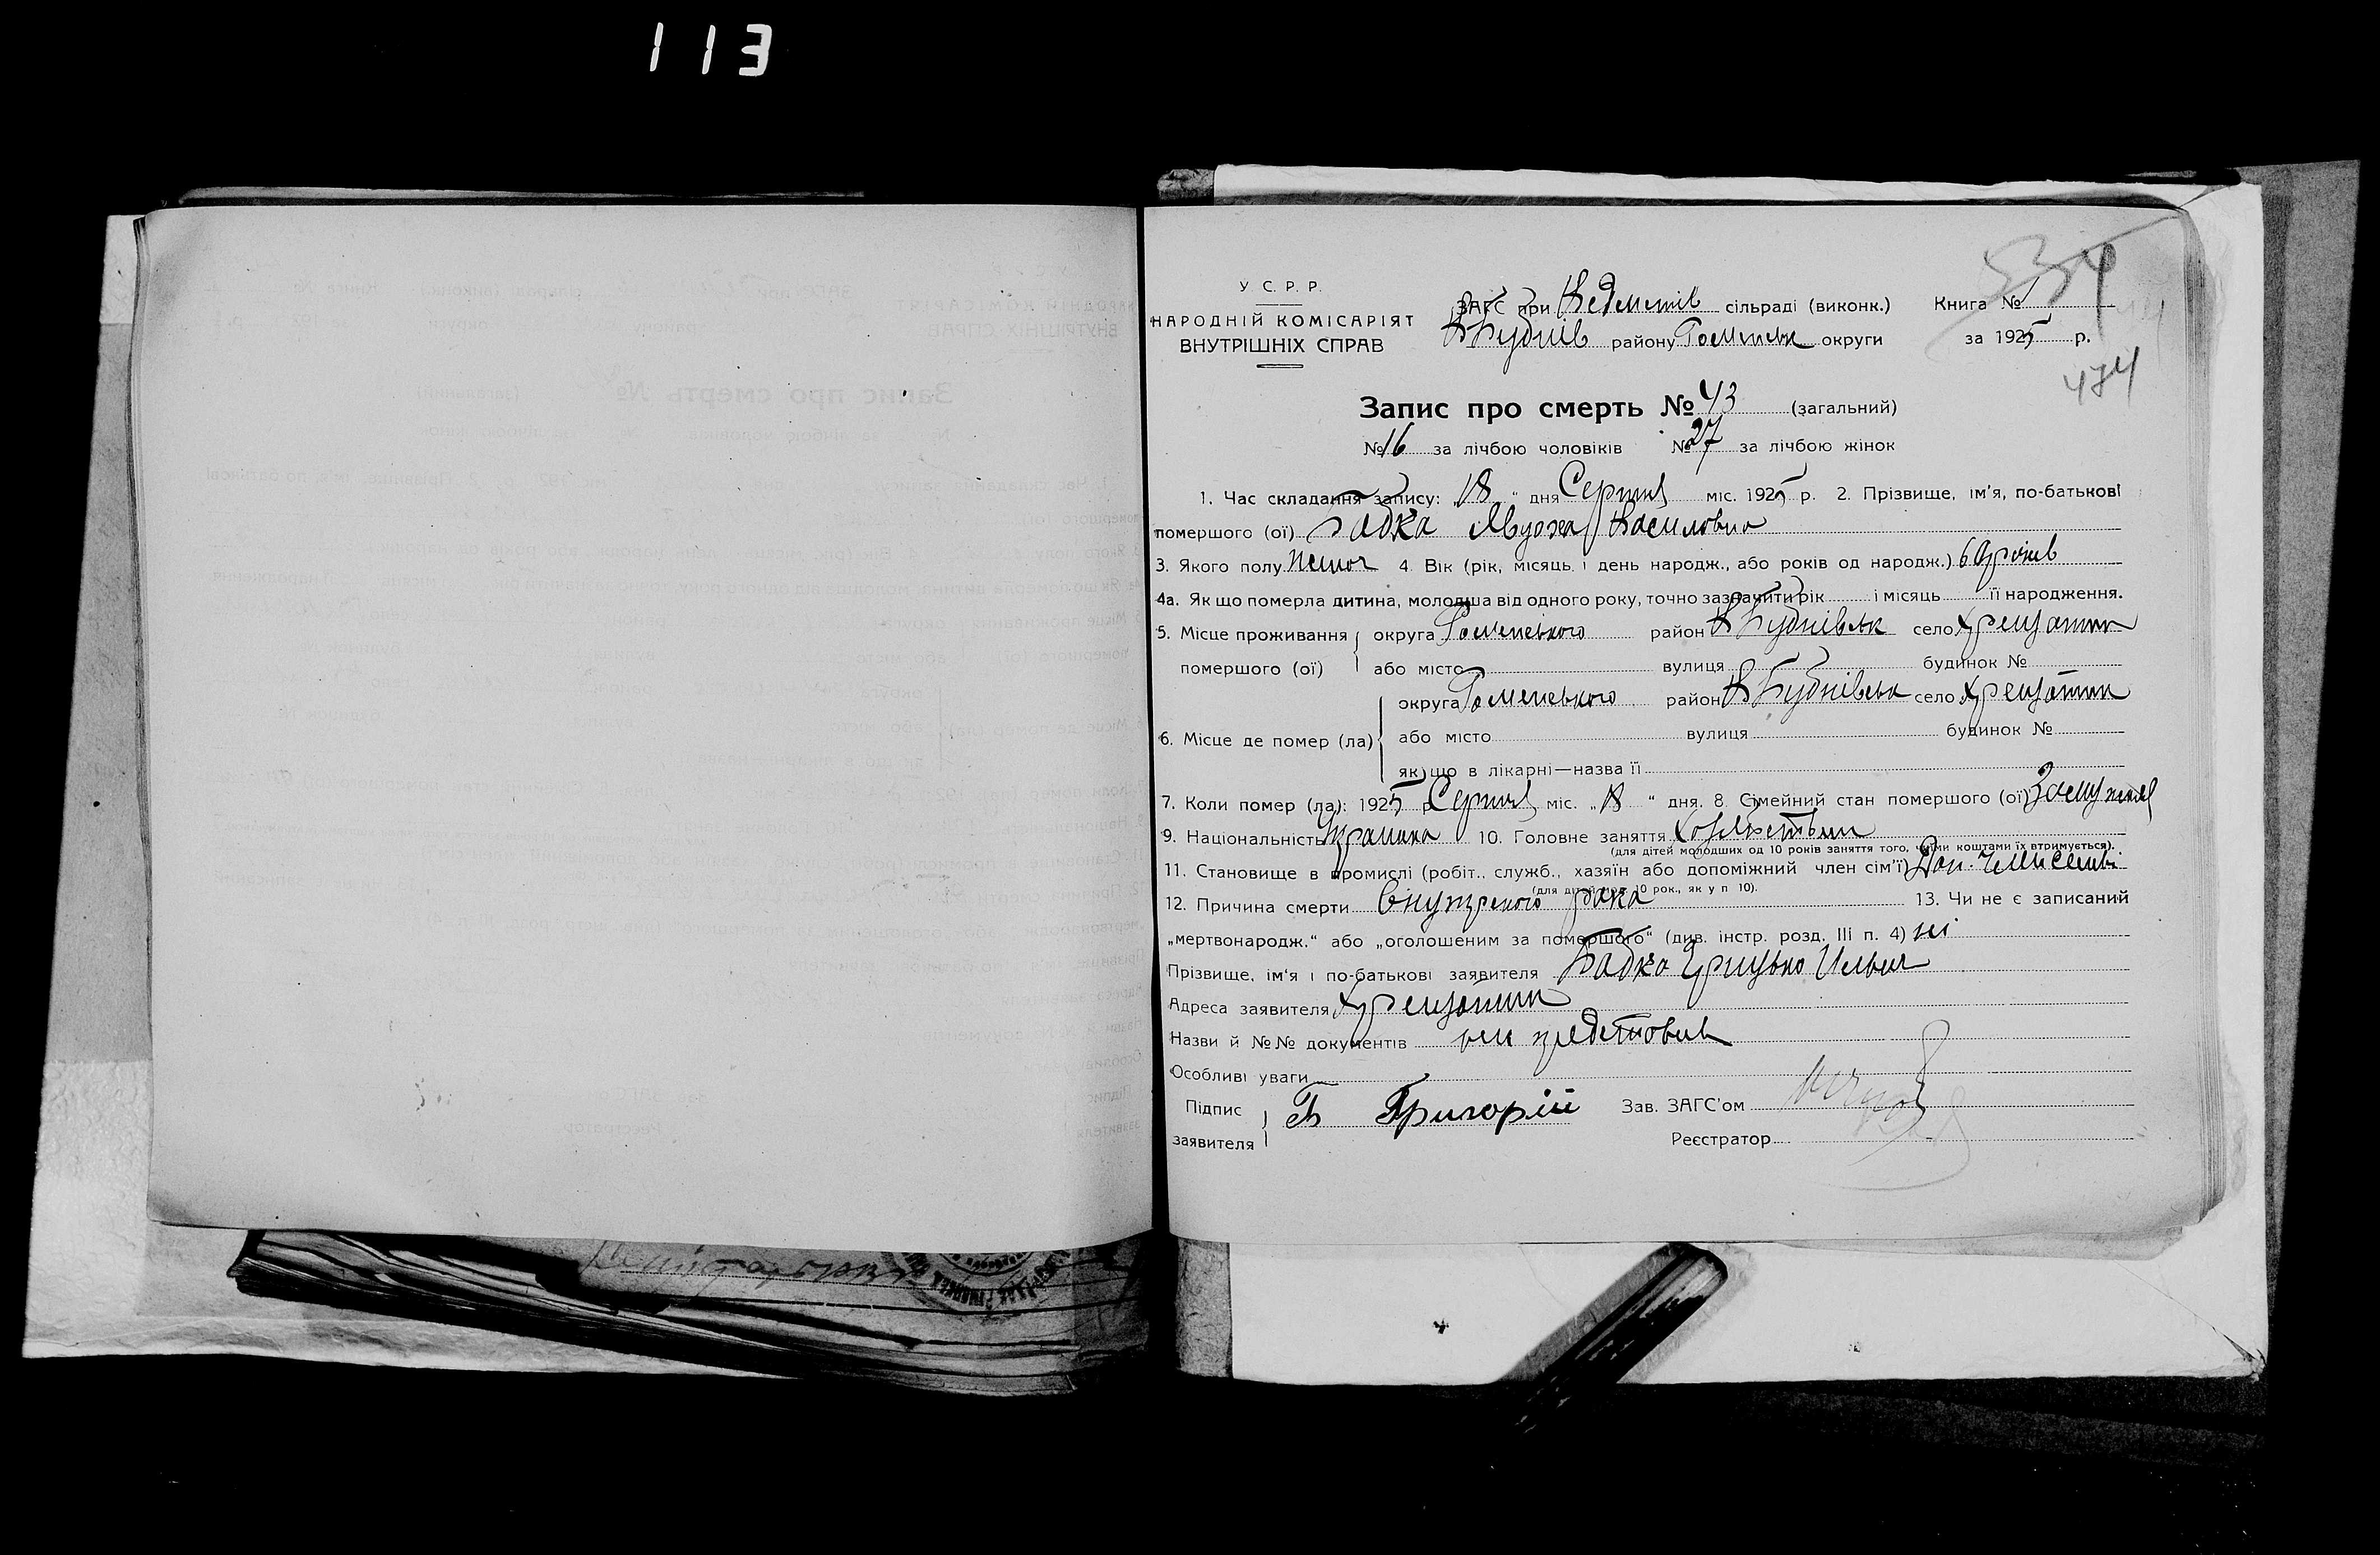 113
У С. Р. Р.
НАРОДНІЙ КОМІСАРІЯТ
ВНУТРІШНІХ СПРАВ
ЗАГС при сільраді (виконк.) Книга № 1
району Роменськ округи за 1925 р.
474
Запис про смерть № 43 (загальний)
№ 16 за лічбою чоловіків № 27 за лічбою жінок
1. Час складання запису: „18" дня Серпня міс. 1925 р. 2. Прізвище, ім'я, по-батькові
помершого (ої) Бабка Явдоха Василовна
3. Якого полу жіноч 4. Вік (рік, місяць і день народж., або років од народж.) років
4а. Як що померла дитина, молодша від одного року, точно зазначити рік і місяць її народження.
5. Місце проживання округа Роменського район В Бубнівськ село Хрещатик
помершого (ої) або місто вулиця будинок №
округа Роменського район В Бубнівськ село Хрещатик
6. Місце де помер (ла) або місто вулиця будинок №
як що в лікарні—назва її
7. Коли помер (ла): 1925 р. Серпня міс. „18" дня. 8 Сімейний стан помершого (ої) Замужня
9. Національність Украинка 10. Головне заняття Хозяйством
(для дітей молодших од 10 років заняття того, чиїми коштами їх втримується).
11. Становище в промислі (робіт., служб., хазяїн або допоміжний член сім'ї) Доп. член семї
(для дітей мол. 10 рок., як у п 10).
12. Причина смерти Внутреного рака 13. Чи не є записаний
„мертвонародж." або „оголошеним за помершого" (див. інстр. розд. III п. 4) ні
Прізвище, ім'я і по-батькові заявителя Бабка Грицько Ильич
Адреса заявителя Хрещатик
Назви й №№ документів не представив
Особливі уваги
Підпис Б Григорій Зав. ЗАГС'ом
заявителя Реєстратор